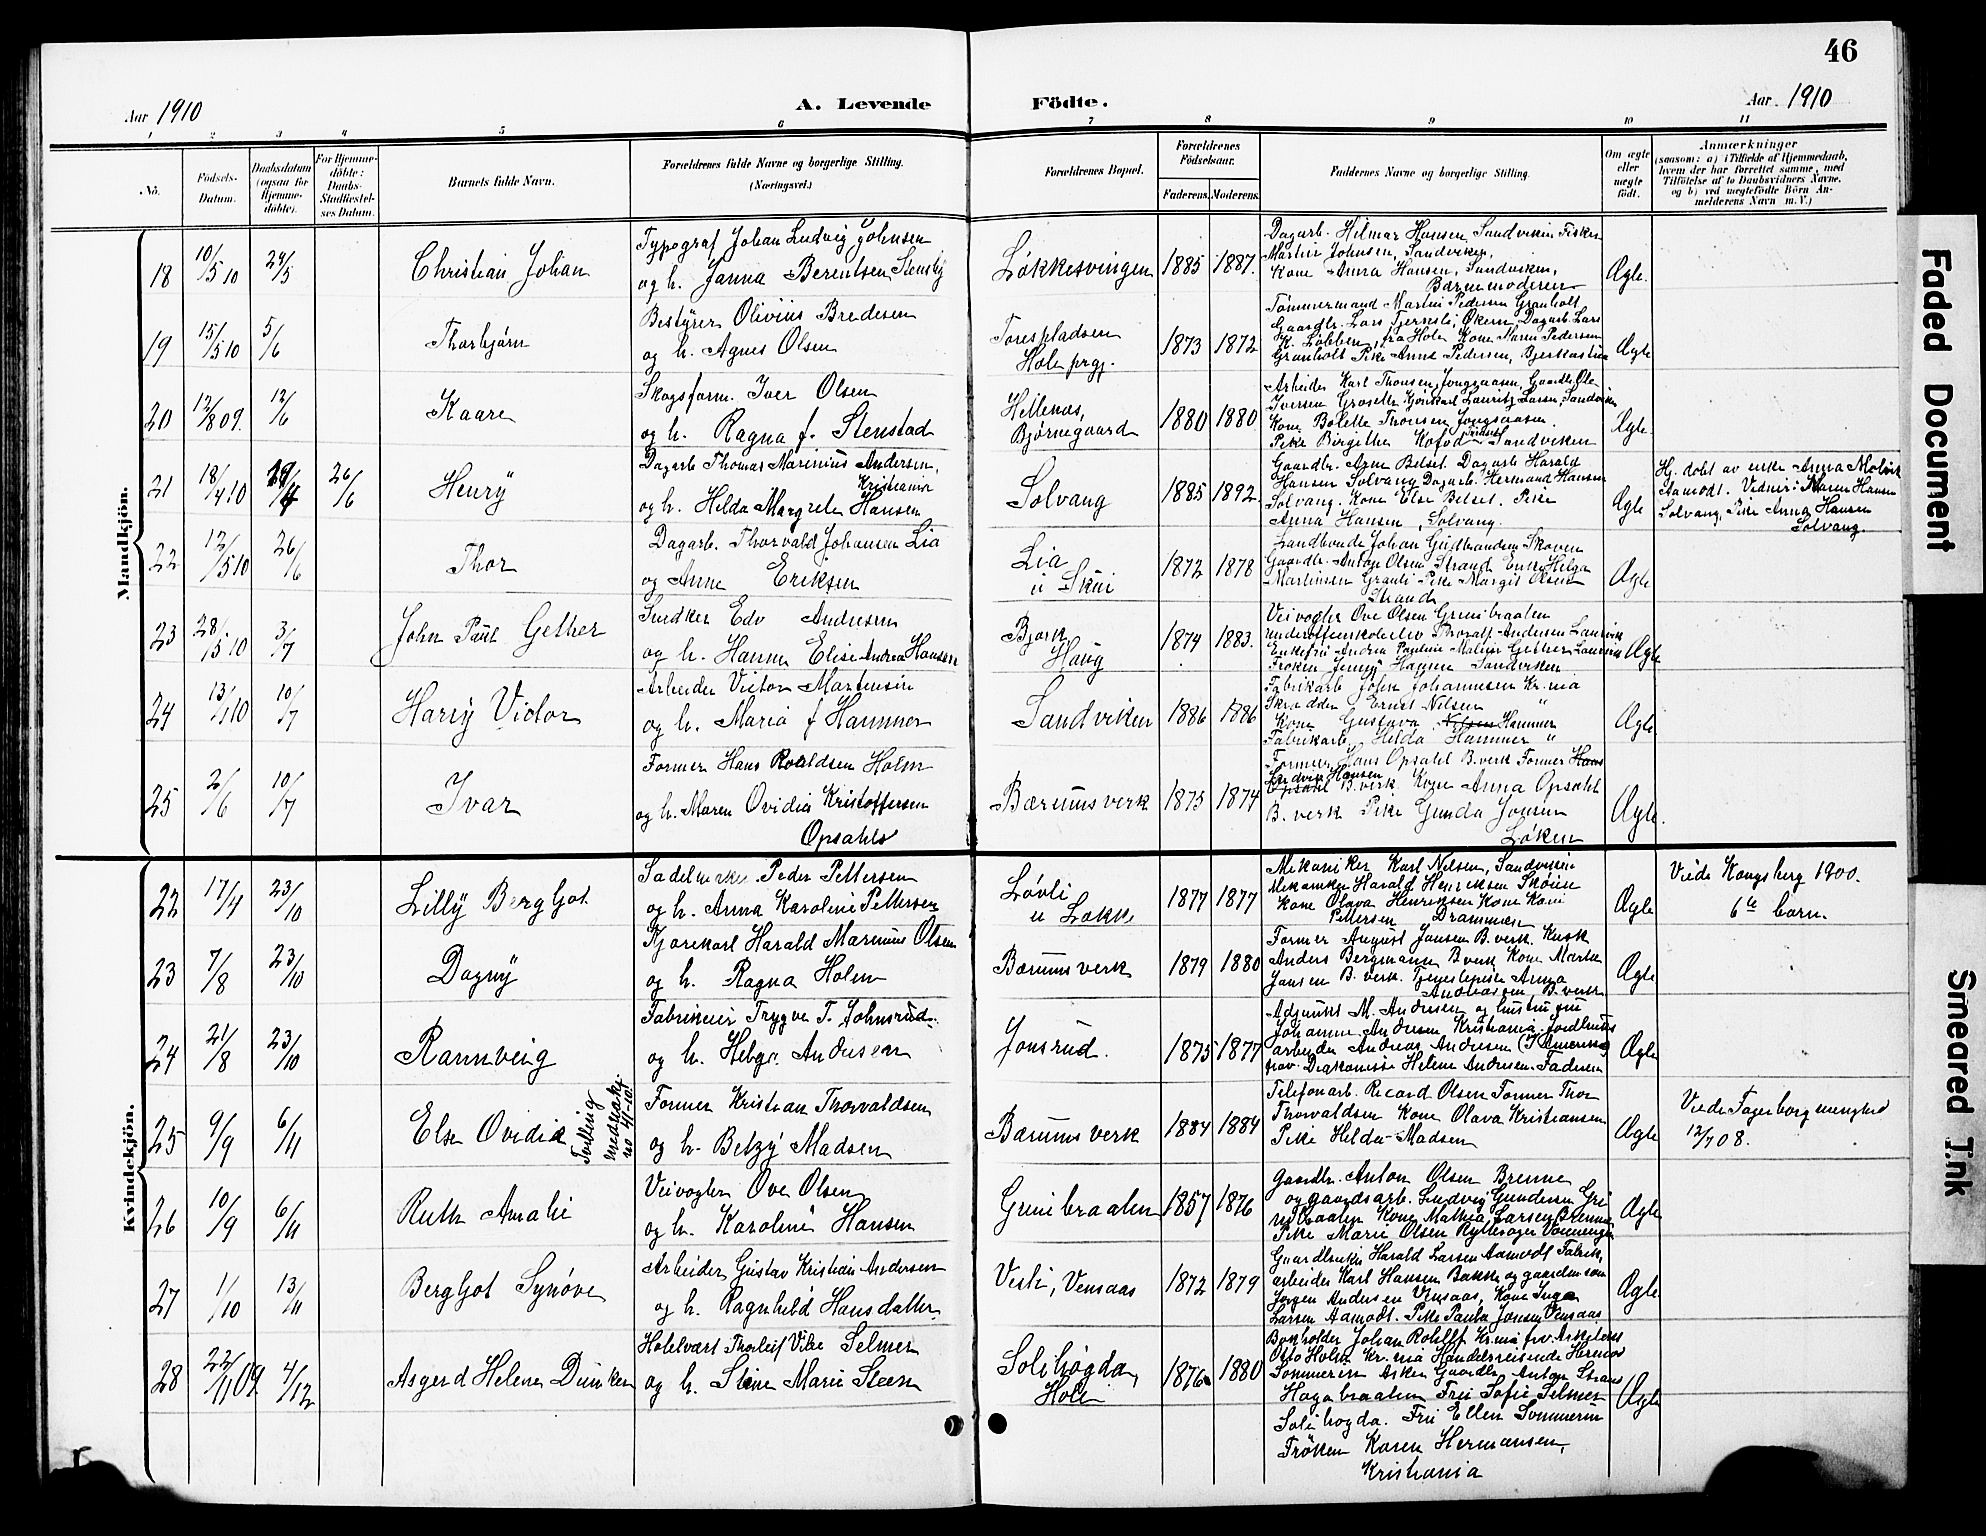 46
Aar 1910
A. Levende
Födte.
Aar 1910
1 2 3 4 5 6 7 8 9 10 11
No.
Födsels-
Datum.
Daabsdatum
(ogsaa for
Hjemme-
döbte).
For Hjemme-
döbte:
Daabs-
Stadfæstel-
ses Datum.
Barnets fulde Navn.
Forældrenes fulde Navne og borgerlige Stilling.
(Næringsvei.)
Forældrenes Bopæl.
Forældrenes
Födselsaar.
Faderens. Moderens.
Faddernes Navne og borgerlige Stilling.
Om ægte
eller
uægte
födt.
Anmærkninger
(saasom: a) i Tilfælde af Hjemmedaab,
hvem der har forrettet samme, med
Tilföielse af to Daabsvidners Navne,
og b) ved uægtefödte Börn An-
melderens Navn m. V.)
Mandkjön.
18 10/5 10 29/5 Christian Johan
Typograf Johan Ludvig Johnsen
og h. Janna Berentsen Stensby
Løkkesvingen 1885 1887.
Dagarb. Hilmar Hansen, Sandviken Fisker
Martin Johnsen, Sandviken,
Kone Anna Hansen, Sandviken,
Barnemoderen
Ægte.
19 15/5 10 5/6 Thorbjørn
Bestyrer Olivius Bredesen
og h. Agnes Olsen
Torespladsen
Hole prgj.
1873 1872
Tømmermand Martin Pedersen Granholt
K. Løbben, fra Hole Kone Maren Pedersen
Granholt Pike Anna Pedersen,
Ægte
20 12/8 09. 12/6 Kaare
Skogsform. Iver Olsen
og h. Ragna f. Stenstad
Hellenas,
Bjørnegaard
1880 1880
Arbeider Karl Thonsen, Jongsaasen, Gaardbr. Ole
Iversen Lauritz Larsen, Sandviken
Kone Bolette Thonsen Jongsaasen.
Pike Birgithe Kofod Sandviken
Ægte.
21 18/4 10 26/6 Henrÿ
Dagarb Thomas Marinius Andersen,
og h. Hilda Margrete Kristiania Hansen
Solvang 1885 1892.
Gaardbr. Arne Belset. Dagarb Harald
Hansen Solvang Dagarb. Hermand Hansen
Solvang. Kone Else Belset. Pike
Anna Hansen, Solvang.
Ægte
Hj. døbt av enke Anna Molvik
Aamodt. Vidner: Maren Hansen
Solvang, Pike Anna Hansen
Solvang.
22 12/5 10 26/6 Thor
Dagarb. Thorvald Johansen Lia
og Anne Eriksen
Lia
u Skui
1872 1878
Landbonde Johan Gudbrandsen Skoven
Gaardbr. Anton Olsen Strand Enke Helga
Martinsen Granli Pike Margit Olsen
Strand
Ægte
23 28/5 10 3/7 John Paul Gether
Snedker Edv Andresen
og h. Hanna Elise Andrea Hansen
Bjerk
Haug
1874 1883.
Veivogter Ove Olsen Grinibraaten
Underofficerskoleelev Thoralf Andersen Laurvik
Enkefru Andrea Pauline Malvir Gether Laurvik
Frøken Jenny Hanna Sandviken
Ægte
24 13/1 10 10/7 Harry Victor
Arbeider Victor Martinsen
og h. Maria f Hammer
Sandviken 1886 1886
Fabrikarb John Johannesen Kr.nia
Skrædder Ernst Nilsen "
Kone Gustava Nilsen Hammer
Fabrikarb. Hilda Hammer "
Ægte
25 2/6 10/7 Ivar
Former Hans Roaldsen Holm
og h. Maren Ovidia Kristoffersen
Opsahls
Bærums verk 1875 1874
Former Hans Opsahl B.verk Former Hans
Ludvik Hansen
Opsahl B.verk Kone Anna Opsahl
B.verk Pike Gunda Jonsen
Løken
Ægte.
Kvindekjön.
22 17/4 23/10 Lilly Bergljot
Sadelmaker Peder Pettersen
og h. Anna Karoline Pettersen
Løvli
u Løkke
1877 1877
Mekaniker Karl Nilsen, Sandviken
Mekaniker Harald Henriksen Skøien
Kone Olava Henriksen Kone
Pettersen Drammen
Ægte
Viede Kongsberg 1900.
6te barn.
23 7/8 23/10 Dagnÿ
Kjørekarl Harald Marinius Olsen
og h. Ragna Holm
Bærums verk 1879 1880
Former August Jansen B.verk. Kusk
Anders Bergmann B verk Kone Marta
Jansen B. verk. Tjenestepike Anna
Andreassen B.verk
Ægte
24 21/8 23/10 Rannveig
Fabrikeier Trygve T. Johnsrud.
og h. Helga Andersen
Jonsrud. 1875 1877
Adjunkt M. Andersen og hustru fru
Johanne Andersen Kristiania Jordbruks
arbeider Andreas Andersen (i Amerika)
frøv. Diakonisse Helene Andersen. Faderen
Ægte
25 9/9 6/11 Else Ovidia
Tvilling
Former Kristian Thorvaldsen
og h. Betzÿ Madsen
Bærums verk 1884 1884
Telefonarb. Ricard Olsen Former Thor
Thorvaldsen Kone Olava Kristiansen
Pike Hilda Madsen
Ægte
Viede Fagerborg menighed
12/7 08.
26 10/9 6/11 Ruth Amalie
Veivogter Ove Olsen
og h. Karoline Hansen
Grinibraaten 1857 1876
Gaardbr. Anton Olsen Brenne
og gaardsarb. Ludvig Gundersen Gri
nibraaten Kone Mathea Larsen Brenne
Pike Marie Olsen
Ægte
27 1/10 13/11 Bergljot Synøve
Arbeider Gustav Kristian Andersen
og h. Ragnhild Hansdatter
Vestli, Vensaas 1872 1879
Gaardbruker Harald Larsen Aamodt Fabrik,
arbeider Karl Hansen Bakke og gaardmann
Jørgen Andersen Vensaas, Kone Inga
Larsen Aamodt. Pike Paula Jonsen Vensaas
Ægte
28 22/11 09 4/12 Asgerd Helene Dunker
Hotelvært Thorleif Vibe Selmer
og h. Stine Marie Steen
Solihøgda,
Hole
1876 1880
Bokholder Johan Rohlff Kr.nia frv. Arkitekt
Otto Holm Kr.nia Handelsreisende Herman
Sommerin Asker Gaardbr. Anton Strand
Hagabraaten Fru Sofie Selmer
Solihøgda. Fru Ellen Sommerin
Frøken Karen Hermansen,
Kristiania
Ægte
Faded Document
Smeared Ink